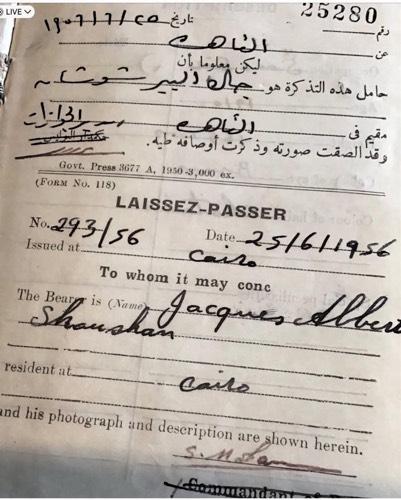 LIVE
25280
رقم
تاريخ ٢٥/٦/١٩٥٦
عن القاهرة
ليكن معلوما بأن
حامل هذه التذكرة هو جاك البير شوشانه
مقيم فى القاهرة
وقد الصقت صورته وذكرت أوصافه طيه.
Govt. Press 3677 A, 1950-3,000 ex.
(FORM No. 118)
LAISSEZ-PASSER
No. 293/56 Date 25/6/1956
Issued at Cairo
To whom it may conc
The Bearer is (Name) Jacques Albert
Shaushan
resident at Cairo
and his photograph and description are shown herein.
Commandant